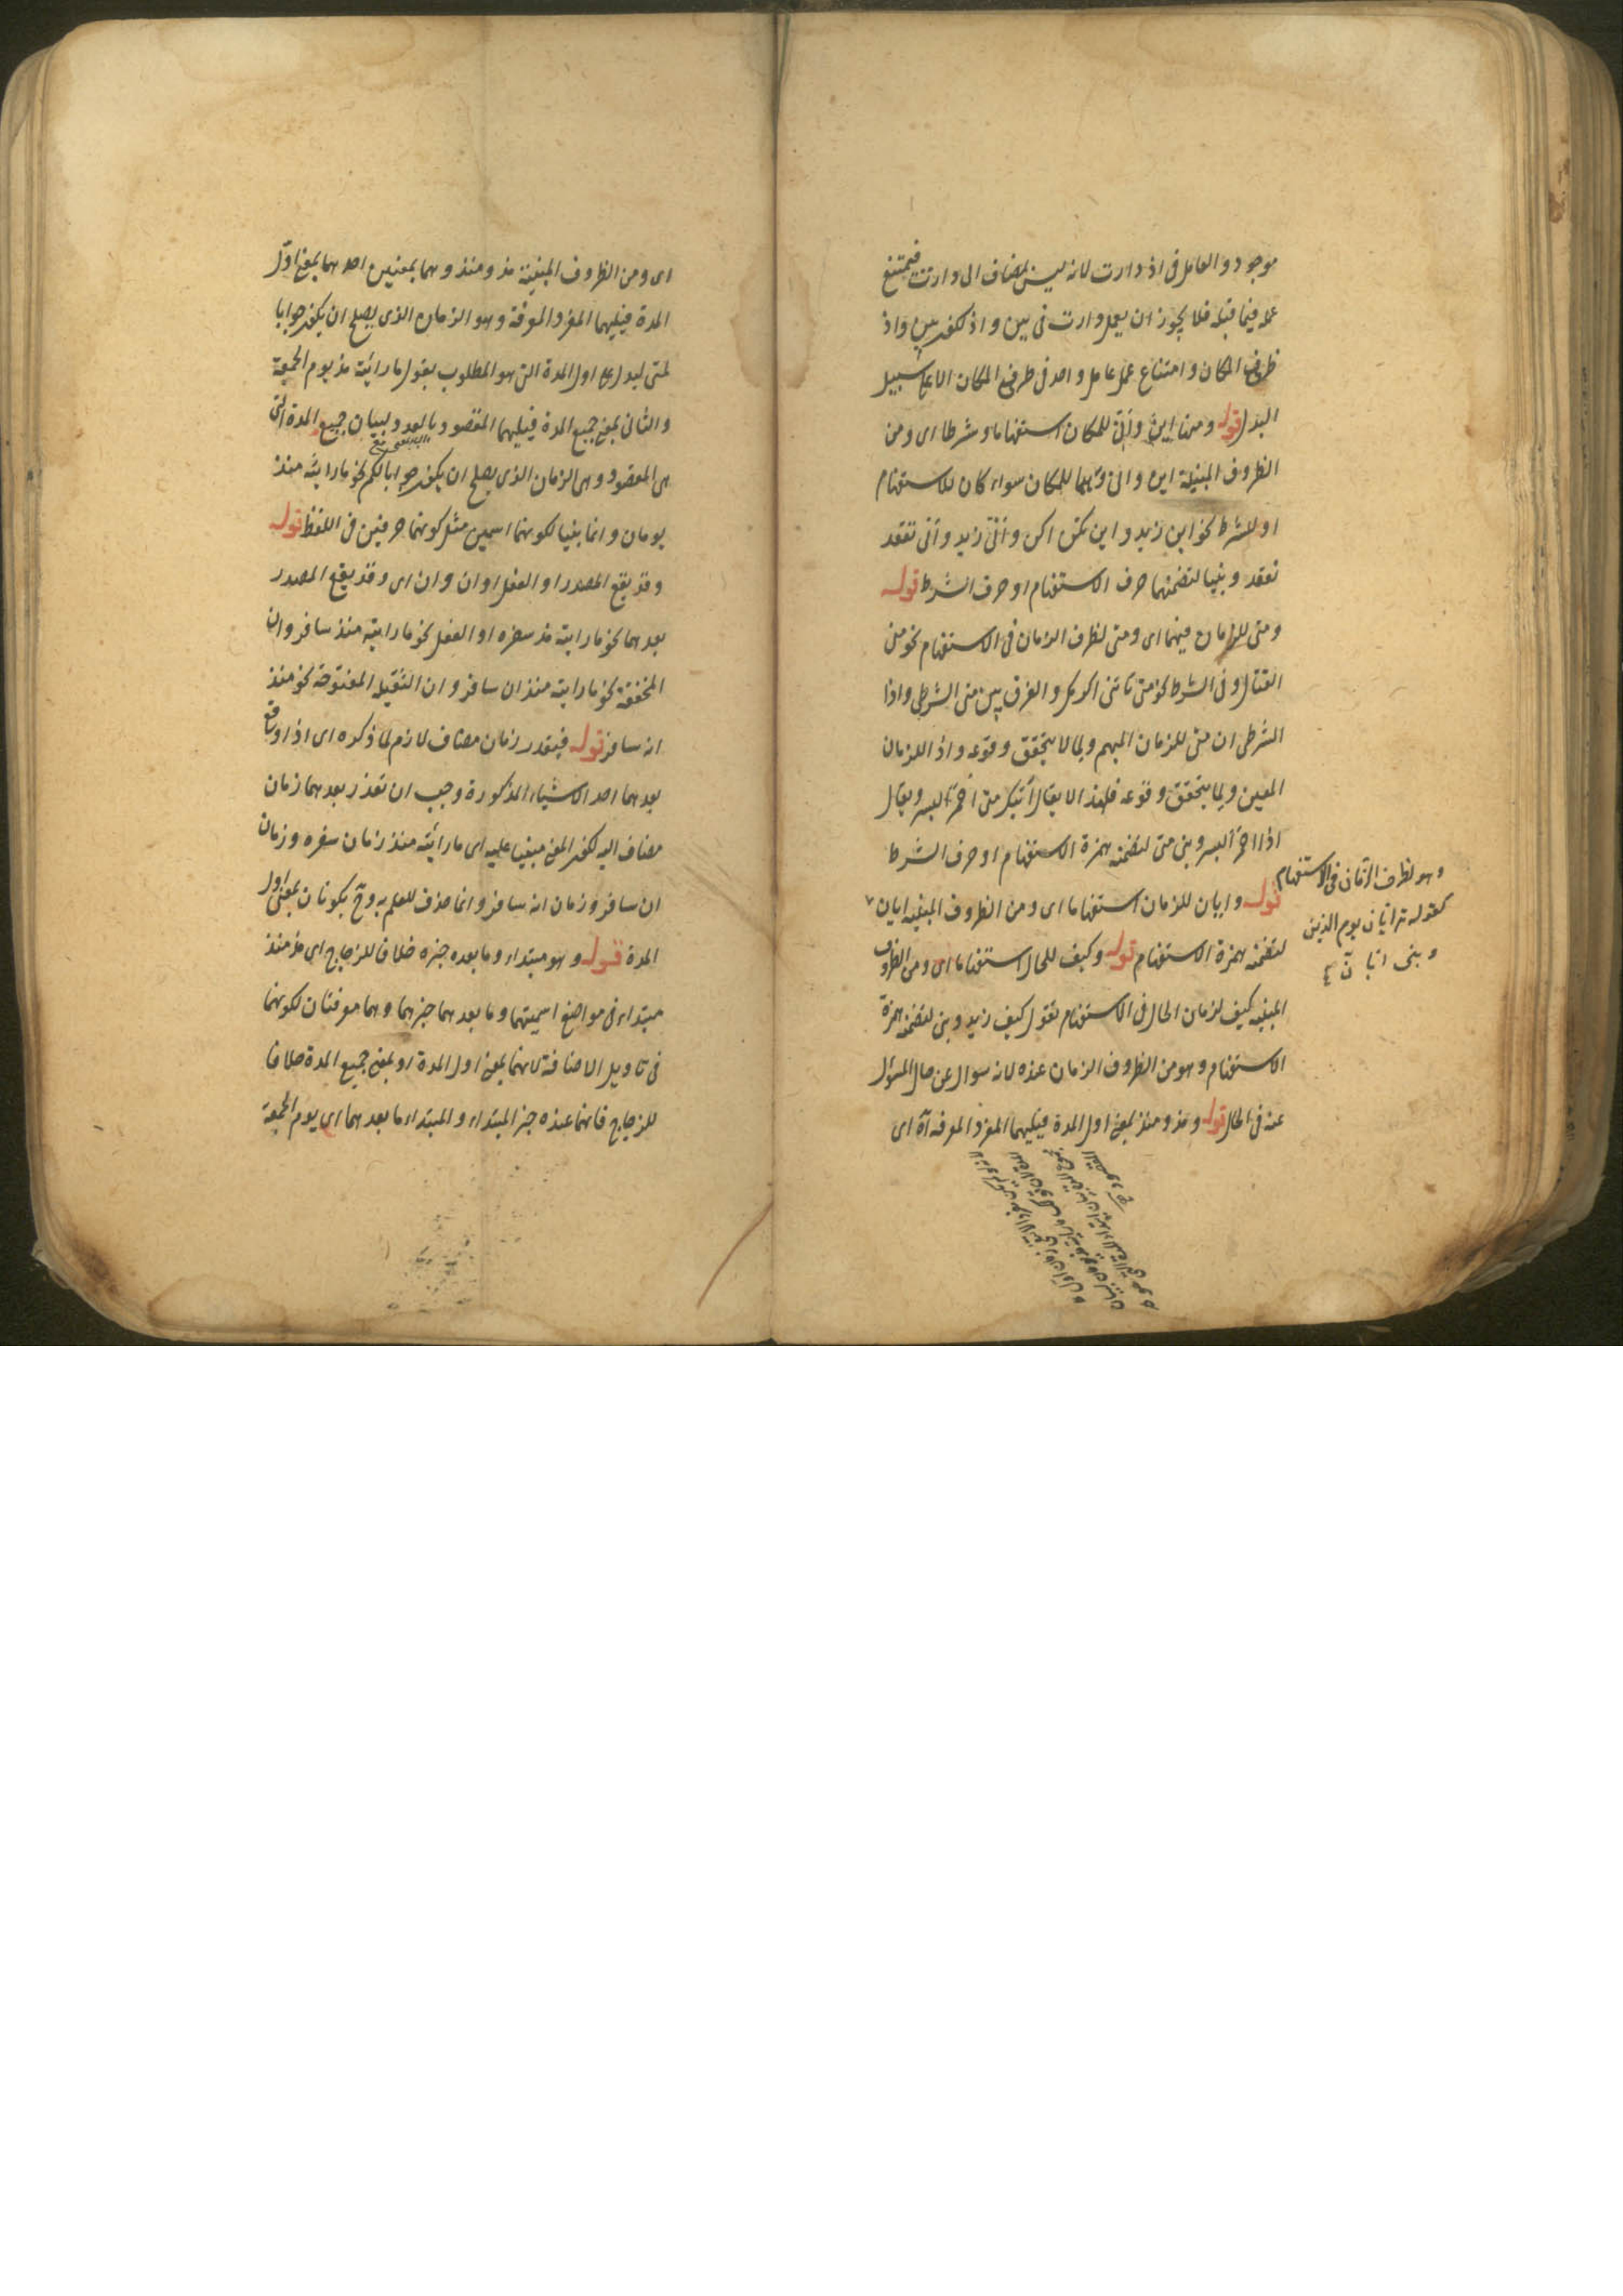 موجود والعامل فى اذ دارت لانه ليس بمضاف الى دارت فيمتنع
عمله فيما قبله فلا يجوز ان يعمل دارت فى بين واذ لكون بين واذ
ظرفى المكان وامتناع عمل عامل واحد فى ظرفى المكان الا على سبيل
البدل قوله ومنها اين وأنّى للمكان استفهاما وشرطا اى ومن
الظروف المبنية اين وانى وهما للمكان سواء كان للاستفهام
او للشرط نحو اين زيد واين تكن اكن وأنّى زيد وأنى تقعد
نقعد وبنيا لتضمنهما حرف الاستفهام او حرف الشرط قوله
ومتى للزمان فيهما اى ومتى لظرف الزمان فى الاستفهام نحو متى
القتال وفى الشرط نحو متى تأتنى اكرمك والفرق بين متى الشرطى واذا
الشرطى ان متى للزمان المبهم ولما لا يتحقق وقوعه واذا للزمان
المعين ولما يتحقق وقوعه فلهذا لا يقال آتيك متى احمرّ البسر ويقال
اذا احمرّ البسر وبنى متى لتضمنه همزة الاستفهام او حرف الشرط
قوله وايان للزمان استفهاما اى ومن الظروف المبنيه ايان
وهو لظرف الزمان فى الاستفهام
كقوله تع ايان يوم الدين
وبنى ايان
لتضمنه همزة الاستفهام قوله وكيف للحال استفهاما اى ومن الظروف
المبنيه كيف لزمان الحال فى الاستفهام تقول كيف زيد وبنى لتضمنه همزة
الاستفهام وهو من الظروف الزمان عنده لانه سوال عن حال المسؤل
عنه فى الحال قوله ومذ ومنذ بمعنى اول المدة فيليهما المفرد المعرفه آه اى
اى ومن الظروف المبنية مذ ومنذ وهما بمعنيين احدهما بمعنى اوّل
المدة فيليهما المفرد المعرفة وهو الزمان الذى يصلح ان يكون جوابا
لمتى ليدل على اول المدة التى هو المطلوب بقول ما رايته مذ يوم الجمعة
والثانى بمعنى جميع المدة فيليهما المقصود بالعدد لبيان جميع المدة التى
هى المقصود وهى الزمان الذى يصلح ان يكون جوابا لكم نحو ما رايته منذ
يومان وانما بنيا لكونهما اسمين مثل كونهما حرفين فى اللفظ قوله
وقد يقع المصدر او الفعل او ان وان اى وقد يقع المصدر
بعدهما نحو ما رايته مذ سفره او الفعل نحو ما رايته منذ سافر وان
المخففة نحو ما رايته منذ ان سافر وان الثقيله المفتوحة نحو منذ
انه سافر قوله فيقدر زمان مضاف لازم لما ذكره اى اذا وقع
بعدهما احد الاشياء المذكورة وجب ان تقدر بعدهما زمان
مضاف اليه لكون المعنى مبنيا عليه اى ما رايته منذ زمان سفره وزمان
ان سافر وزمان انه سافر وانما حذف للعلم به وح يكونان بمعنى اول
المدة قوله وهو مبتداء وما بعده خبره خلافا للزجاج اى مذ منذ
مبتداء فى مواضع اسميتهما وما بعدهما خبرهما وهما معرفتان لكونهما
فى تاويل الاضافة لانهما بمعنى اول المدة او بمعنى جميع المدة خلافا
للزجاج فانهما عنده خبر المبتداء والمبتداء ما بعدهما اى يوم الجمعة